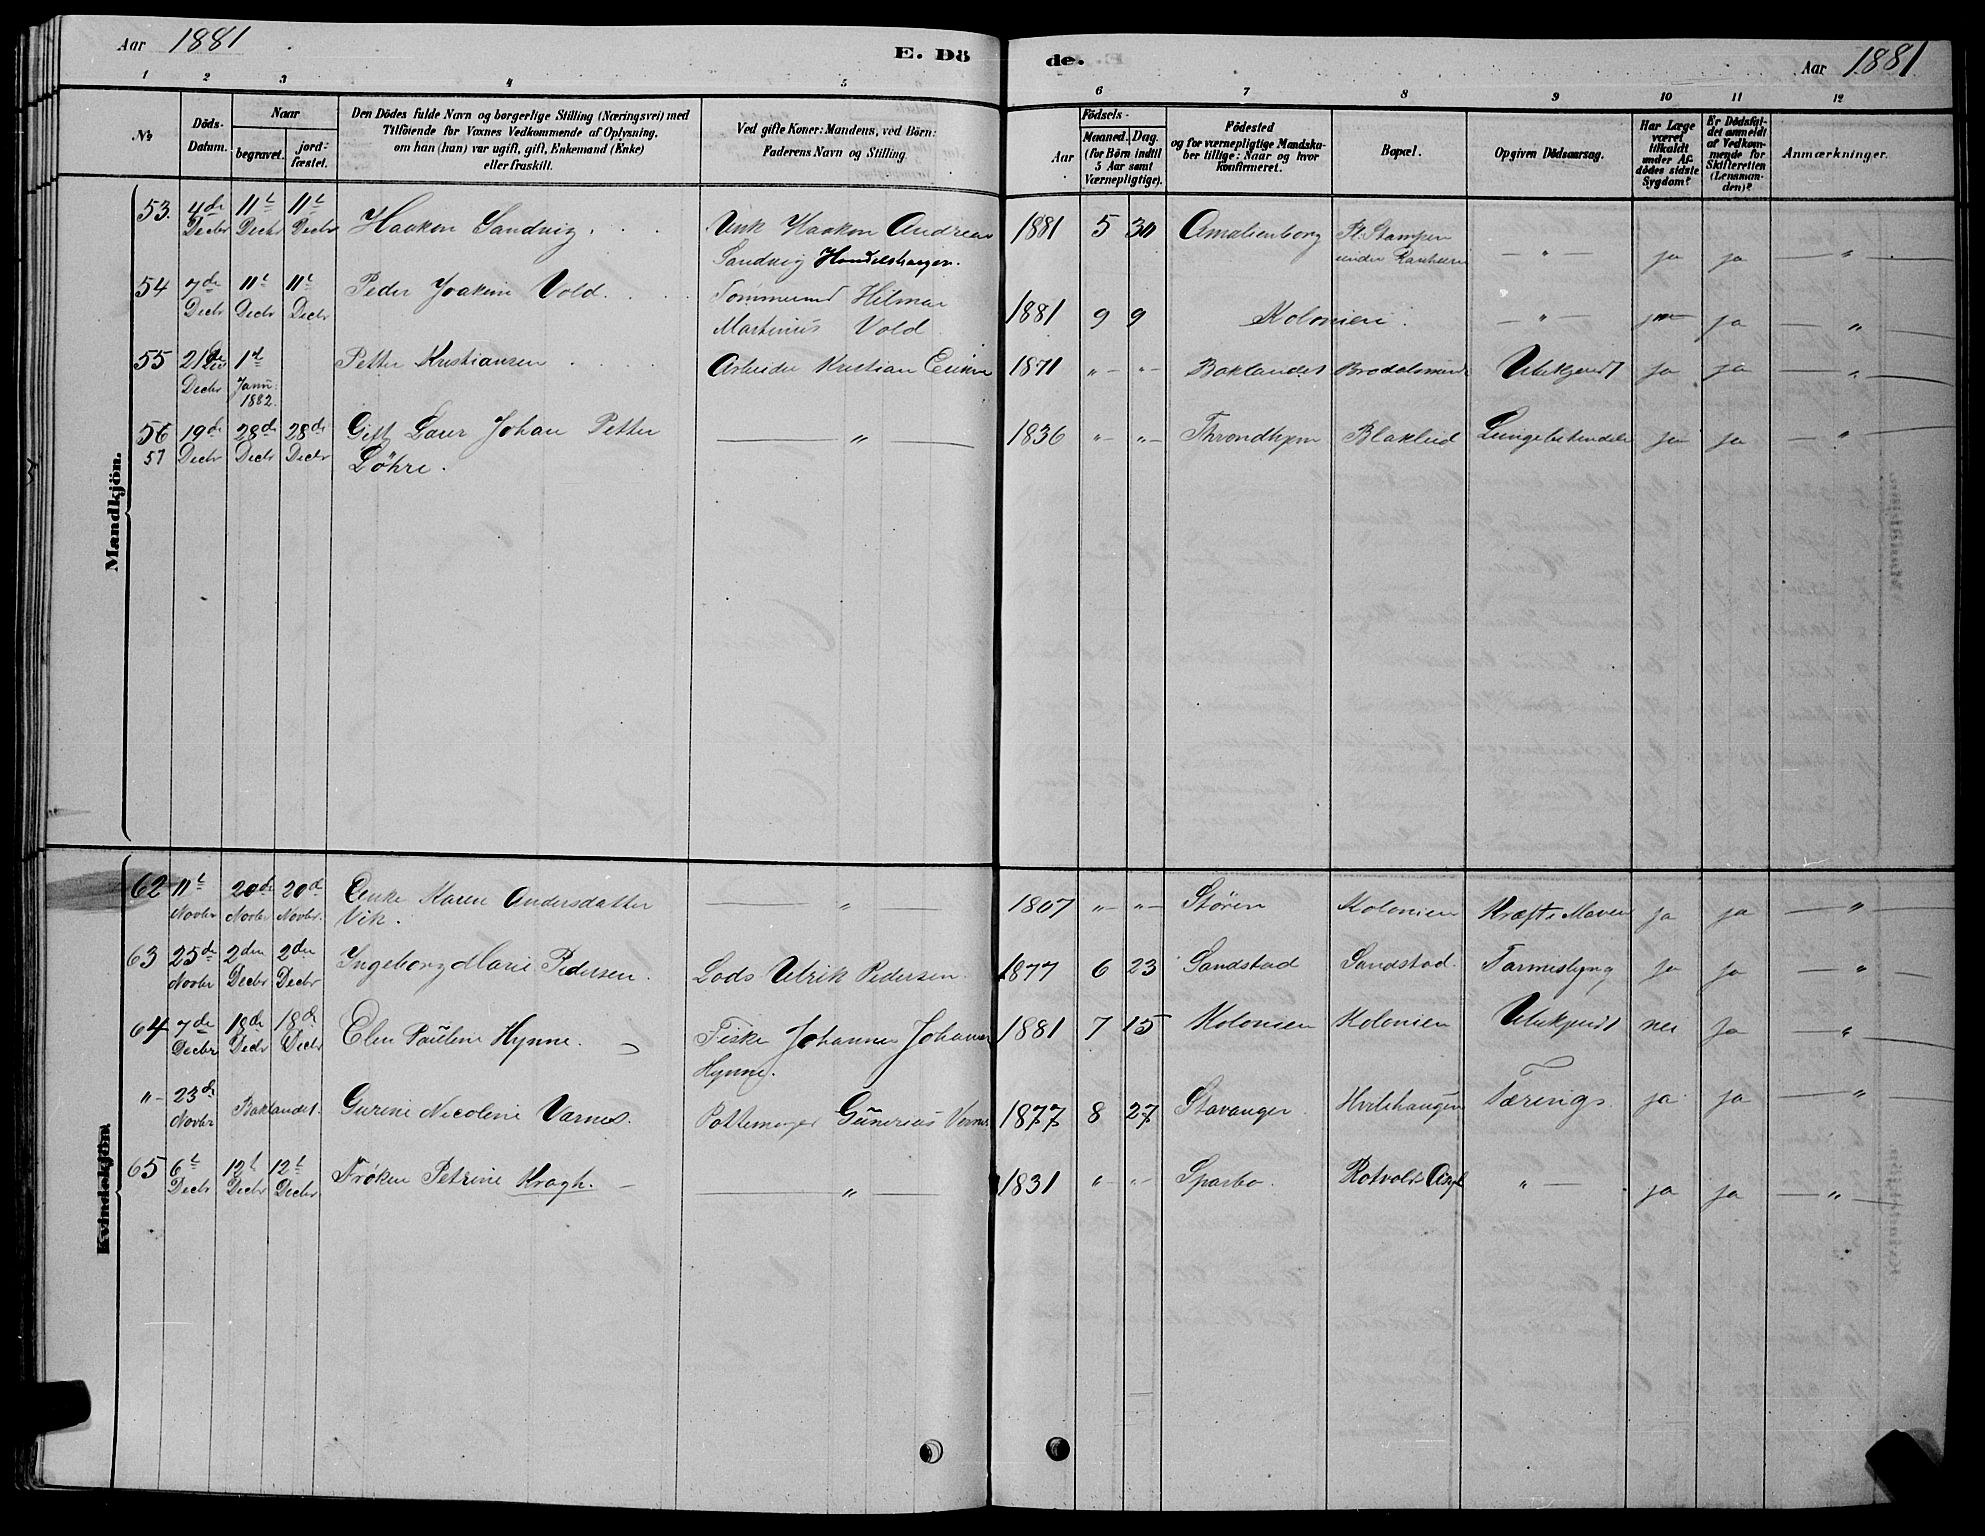 Aar 1881
E. Dö
de.
Aar 1881
1 2 3 4 5 6 7 8 9 10 11 12
№
Döds-
Datum.
Naar
begravet.
jord-
fæstet.
Den Dödes fulde Navn og borgerlige Stilling (Næringsvei) med
Tilföiende for Voxnes Vedkommende af Oplysning,
om han (hun) var ugift, gift, Enkemand (Enke)
eller fraskilt.
Ved gifte Koner: Mandens, ved Börn:
Faderens Navn og Stilling.
Födsels-
Aar
Maaned. Dag.
(for Börn indtil
5 Aar samt
Værnepligtige).
Födested
og for værnepligtige Mandska-
ber tillige: Naar og hvor
konfirmeret.
Bopæl.
Opgiven Dödsaarsag.
Har Læge
været
tilkaldt
under Af-
dödes sidste
Sygdom?
Er Dödsfal-
det anmeldt
af Vedkom-
mende for
Skifteretten
(Lensman-
den)?
Anmærkninger.
Mandkjön.
53. 4de 11t 11t Haakon Sandvig Haakon Andreas 1881 5 30 Amalienborg
Decbr Decbr Decbr Sandvig under — " — ja ja — "
54 7de 11t 11t Peder Joakim Vold. Hilmar
Decbr Decbr Decbr Martinius Vold 1881 9 9 Kolonien. — " — ja ja — "
55 21de 1ste Petter Kristiansen Arbeider Kristian 1871 " " Baklandet Ubekjendt ja ja — "
Decbr Janu:
1882.
56 19de 28de 28de Gift Johan Petter — " — 1836 " " Throndhjem Blaklied ja ja — "
57 Decbr Decbr Decbr Löhre.
Kvindekjön.
62 11t 20de 20de Enke Karen Andersdatter — " — 1807 " " Stören Kolonien Kræft i Maven ja ja — "
Novbr Novbr Novbr. Vik.
63 25de 2den 2den Ingeborg Marie Pedersen. Lods Ulrik Pedersen 1877 6 23 Sandstad Sandstad. ja ja — "
Novbr Decbr Decbr
64 7de 18de 18de Elen Pauline Hynne. Johannes 1881 7 15 Kolonien Kolonien Ubekjendt nei ja — "
Decbr Decbr Decbr Hynne.
" 23de Baklandet. Gurine Nicoline Varnes. Gunerius 1877 8 27 Stavanger Tærings ja ja — "
Novbr
65 6t 12t 12t Fröken Petrine Krogh. — " — 1831 " " Sparbo. Rotvolds Asyl " — ja ja — "
Decbr Decbr Decbr